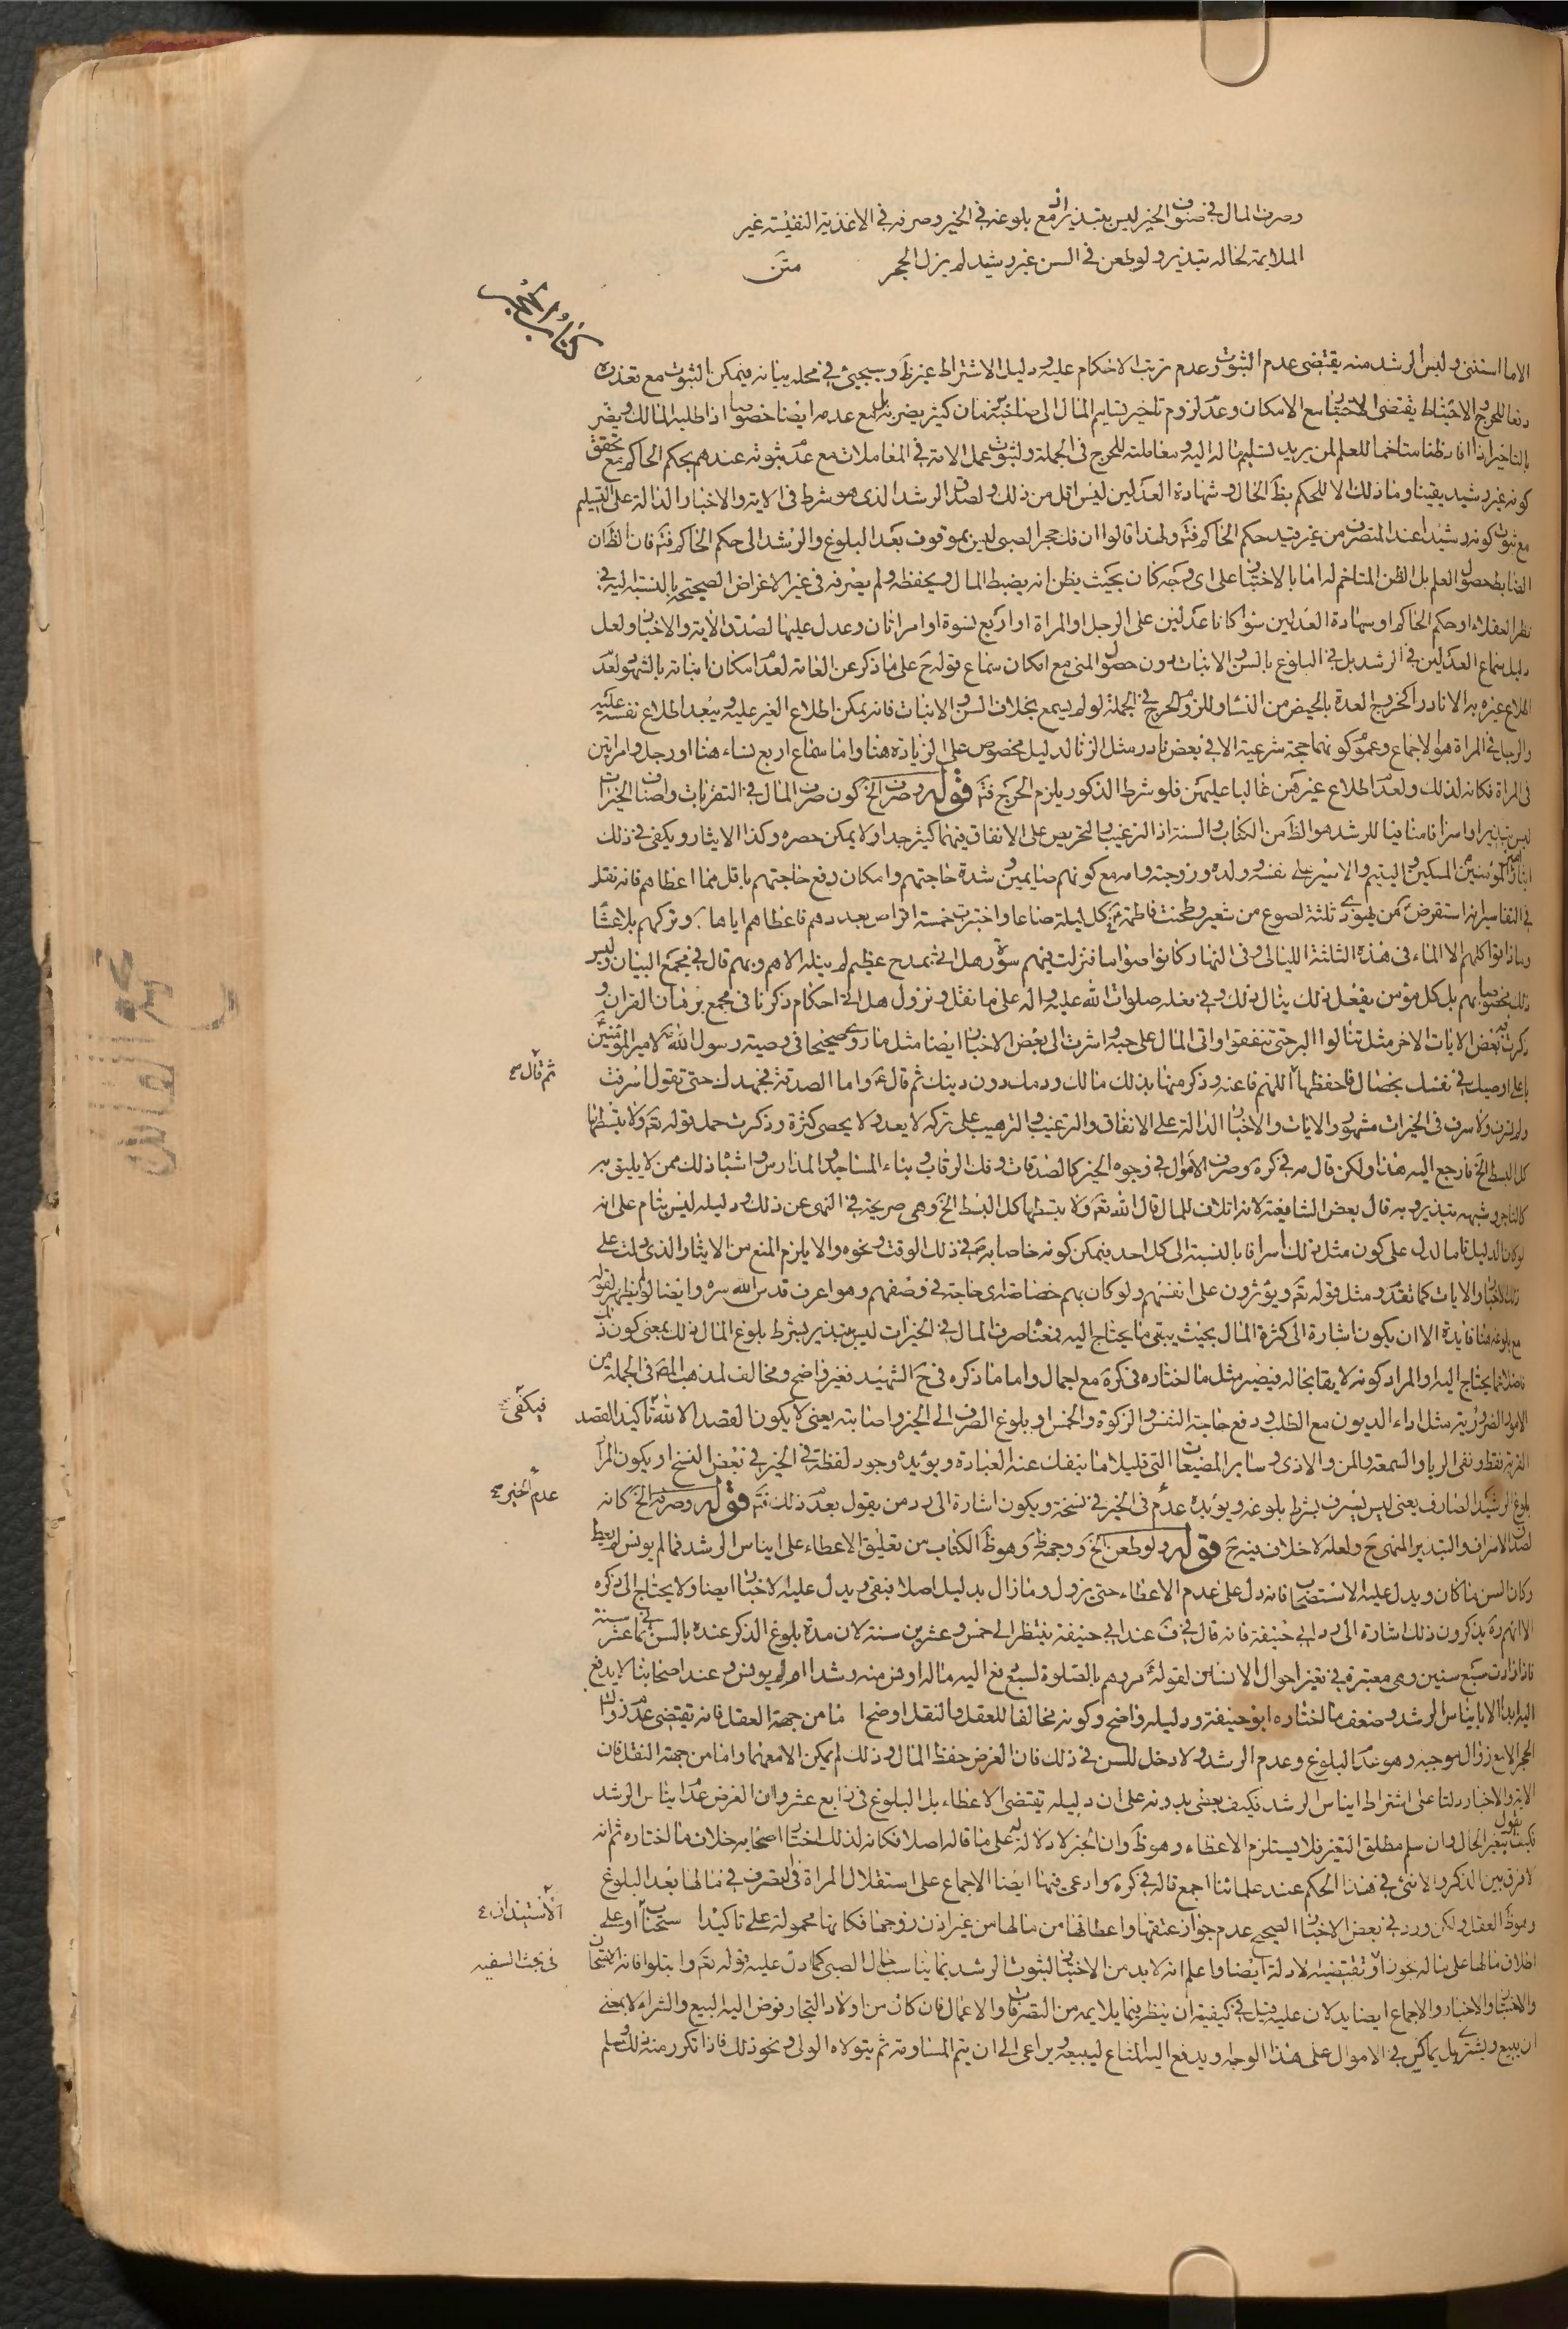 وصرف المال في صنوف الخير ليس بتبذير مع بلوغه في الخير وصرفه في الاغذية النفيسة غير
الملايمة لحاله تبذير ولو طعن في السن غير رشيد لم يزل الحجر متن
كتاب الحجر
الا ما استثنى وليس الرشد منه يقتضى عدم الثبوت وعدم ترتب الاحكام عليه ودليل الاشتراط غير ظ وسيجيئ في محله بيانه فيمكن الثبوت مع تعذره
دفعا للحرج والاحتياط يقتضى الاختبار مع الامكان وعدم لزوم تاخير تسليم المال الى صاحبه زمان كثير يضر به بل مع عدمه ايضا خصوصا اذا طلبه المالك ويضر
بالتاخير اذا افاد ظنا متاخما للعلم لمن يريد تسليم ماله اليه ومعاملته للحرج في الجملة ولثبوت عمل الامة في المعاملات مع عدم ثبوته عندهم بحكم الحاكم مع تحقق
كونه غير رشيد يقينا وما ذلك الا للحكم بظ الحال وشهادة العدلين ليس اقل من ذلك ولصدق الرشد الذى هو شرط في الاية والاخبار الدالة على التسليم
مع ثبوت كونه رشيدا عند المتصرف من غير قيد حكم الحاكم فتم ولهذا قالوا ان فك حجر الصبى ليس بموقوف بعد البلوغ والرشد الى حكم الحاكم فتم فان الظ ان
الضابط حصول العلم بل الظن المتاخم له اما بالاختبار على اى وجه كان بحيث يظن انه يضبط المال ويحفظه ولم يصرفه في غير الاغراض الصحيحة بالنسبة اليه في
نظر العقلاء او حكم الحاكم او شهادة العدلين سوا كانا عدلين على الرجل او المراة او اربع نسوة او امراتان وعدل عليها لصدق الاية والاخبار ولعل
دليل سماع العدلين في الرشد بل في البلوغ بالسن والانبات دون حصول المنى مع امكان سماع قوله ح على ما ذكر عن العامة لعدم امكان اثباته بالشهود لعدم
اطلاع غيره به الا نادرا كخروج العدة بالحيض من النسا وللزوم الحرج في الجملة لو لم يسمع بخلاف السن والانبات فانه يمكن اطلاع الغير عليه ويبعد اطلاع نفسه عليه
والرجا في المراة هو الاجماع وعموم كونهما حجة شرعية الا في بعض نادر مثل الزنا لدليل مخصوص على الزيادة هنا واما سماع اربع نساء هنا او رجل وامراتين
في المراة فكانه لذلك ولعدم اطلاع غيرهن غالبا عليهن فلو شرط الذكور يلزم الحرج فتم قوله وصرف الخ كون صرف المال في القربات واصناف الخيرات
ليس تبذيرا واسرافا منافيا للرشد هو الظ من الكتاب والسنة اذ الترغيب والتحريص على الانفاق فيهما كثير جدا ولا يمكن حصره وكذا الايثار ويكفى في ذلك
ايثار امير المؤمنين المسكين واليتيم والاسير على نفسه وولده وزوجته وامه مع كونهم صايمين وشدة حاجتهم وامكان دفع حاجتهم باقل مما اعطاهم فانه نقل
في التفاسير انه استقرض من يهودى ثلثة اصوع من شعير وطحنت فاطمة ع كل ليلة صاعا واختبزت خمسة اقراص بعددهم فاعطاهم اياها وتركهم بلا عشا
وما ذاقوا كلهم الا الماء في هذه الثلثة الليالى وفى النهار كانوا صواما فنزلت فيهم سورة هل اتى بمدح عظيم لم ينله الا هم وبهم قال في مجمع البيان وليس
ذلك مخصوصا بهم بل كل مؤمن يفعل ذلك ينال ذلك وفى فعله صلوات الله عليه واله على ما نقل ونزول هل اتى احكام ذكرنا في مجمع برهان القران و
ذكرت فيه بعض الايات الاخر مثل لن تنالوا البر حتى تنفقوا واتى المال على حبه واشرت الى بعض الاخبار ايضا مثل ما روى صحيحا في وصية رسول الله ص لامير المؤمنين
يا على اوصيك في نفسك بخصال فاحفظها اللهم فاعنه وذكر منها بذلك مالك ودمك دون دينك ثم قال ع واما الصدقة فجهدك حتى تقول اسرفت
ثم قال ص
ولم تسرف ولا سرف في الخيرات مشهور والايات والاخبار الدالة على الانفاق والترغيب والترهيب على تركه لا يعد ولا يحصى كثرة وذكرت حمل قوله تع ولا تبسطها
كل البسط الخ فارجع اليه هذا ولكن قال في كره وصرف الاموال في وجوه الخير كالصدقات وفك الرقاب وبناء المساجد والمدارس واشباه ذلك ممن لا يليق به
كالتاجر وشبهه تبذير وبه قال بعض الشافعية لانه اتلاف للمال قال الله تع ولا تبسطها كل البسط الخ وهى صريحة في النهى عن ذلك ودليله ليس بتام على انه
لو كان الدليل تاما لدل على كون مثل ذلك اسرافا بالنسبة الى كل احد فيمكن كونه خاصا به ص في ذلك الوقت ونحوه والا يلزم المنع من الايثار الذى دلت على
ذلك الاخبار والايات كما تقدم ومثل قوله تع ويؤثرون على انفسهم ولو كان بهم خصاصة اى حاجة في وصفهم وهو اعرف قدس الله سره وايضا لم يظهر لقوله
مع بلوغه هنا فايدة الا ان يكون اشارة الى كثرة المال بحيث يبقى ما يحتاج اليه فمعناه صرف المال في الخيرات ليس بتبذير بشرط بلوغ المال ذلك بمعنى كون ذلك
فاضلا عما يحتاج اليه او المراد كونه لايقا بحاله فيصير مثل ما اختاره في كره مع اجمال واما ما ذكره في ح الشهيد فغير واضح ومخالف لمذهب المص في الجملة من
الامور الضرورية مثل اداء الديون مع الطلب ودفع حاجة النفس والزكوة والخمس او بلوغ الصرف الى الخير واصابته يعنى لا يكون القصد الا لله تاكيد القصد
فيكفى
القربة فقط ونفى الريا والسمعة والمن والاذى وساير المضيعات التى قليلا ما ينفك عنه العبادة ويؤيده وجود لفظة في الخير في بعض النسخ او يكون المراد
بلوغ الرشيد الصارف يعنى ليس بسرف بشرط بلوغه ويؤيده عدم في الخير في نسخة ويكون اشارة الى رد من يقول بعد ذلك فتم قوله وصرفه الخ كانه
عدم الخير
لصدق الاسراف والتبذير المنهى ح ولعله لا خلاف فيه ح قوله ولو طعن الخ ووجهه ظ وهو ظ الكتاب من تعليق الاعطاء على ايناس الرشد فما لم يونس لم يعط
وكان السن ما كان ويدل عليه الاستصحاب فانه دل على عدم الاعطاء حتى يزول وما زال بدليل اصلا فبقى ويدل عليه الاخبار ايضا ولا يحتاج الى ذكره
الا انهم ره يذكرون ذلك اشارة الى رد ابى حنيفة فانه قال في ف عند ابى حنيفة ينتظر الى خمس وعشرين سنة لان مدة بلوغ الذكر عنده بالسن ثمانى عشر سنة
فاذا زادت سبع سنين وهى معتبرة في تغير احوال الانسان لقوله ع مروهم بالصلوة لسبع دفع اليه ماله اونس منه رشدا ام لم يونس وعند اصحابنا لا يدفع
اليه ابدا الا بايناس الرشد وضعف ما اختاره ابو حنيفة ودليله واضح وكونه مخالفا للعقل والنقل اوضح اما من جهة العقل فانه يقتضى عدم زوال
الحجر الا مع زوال موجبه وهو عدم البلوغ وعدم الرشد ولا دخل للسن في ذلك فان الغرض حفظ المال وذلك لم يمكن الا معهما واما من جهة النقل فان
الاية والاخبار دلتا على اشتراط ايناس الرشد فكيف يعطى بدونه على ان دليله يقتضى الاعطاء بل البلوغ في رابع عشر وان الغرض عدم ايناس الرشد
فكيف يقول بتغير الحال وان سلم مطلق التغير فلا يستلزم الاعطاء وهو ظ وان الخبر لا دلالة له على ما قاله اصلا فكانه لذلك اختار اصحابه خلاف ما اختاره ثم انه
لا فرق بين الذكر والانثى في هذا الحكم عند علمائنا اجمع قاله في كره وادعى فيها ايضا الاجماع على استقلال المراة في التصرف في مالها بعد البلوغ
وهو ظ العقل ولكن ورد في بعض الاخبار الصحيح عدم جواز عتقها واعطائها من مالها من غير اذن زوجها فكانها محمولة على تاكيد استحباب او على
الاستيذان
اطلاق مالها على ماله نحو ان وتقتضيه الادلة ايضا واعلم انه لا بد من الاختبار لثبوت الرشد بما يناسب حال الصبى كما دل عليه قوله تع وابتلوا فانه الامتحان
في بحث السفيه
والاختبار والاخبار والاجماع ايضا يدلان عليه قيل في كيفيته ان ينظر فيما يلايمه من التصرفات والاعمال فان كان من اولاد التجار فوض اليه البيع والشراء لا بمعنى
ان يبيع ويشترى بل يماكس في الاموال على هذا الوجه ويدفع اليه المتاع ليبيعه ويراعى الى ان يتم المساومة ثم يتولاه الولى ونحو ذلك فاذا تكرر منه ذلك وسلم